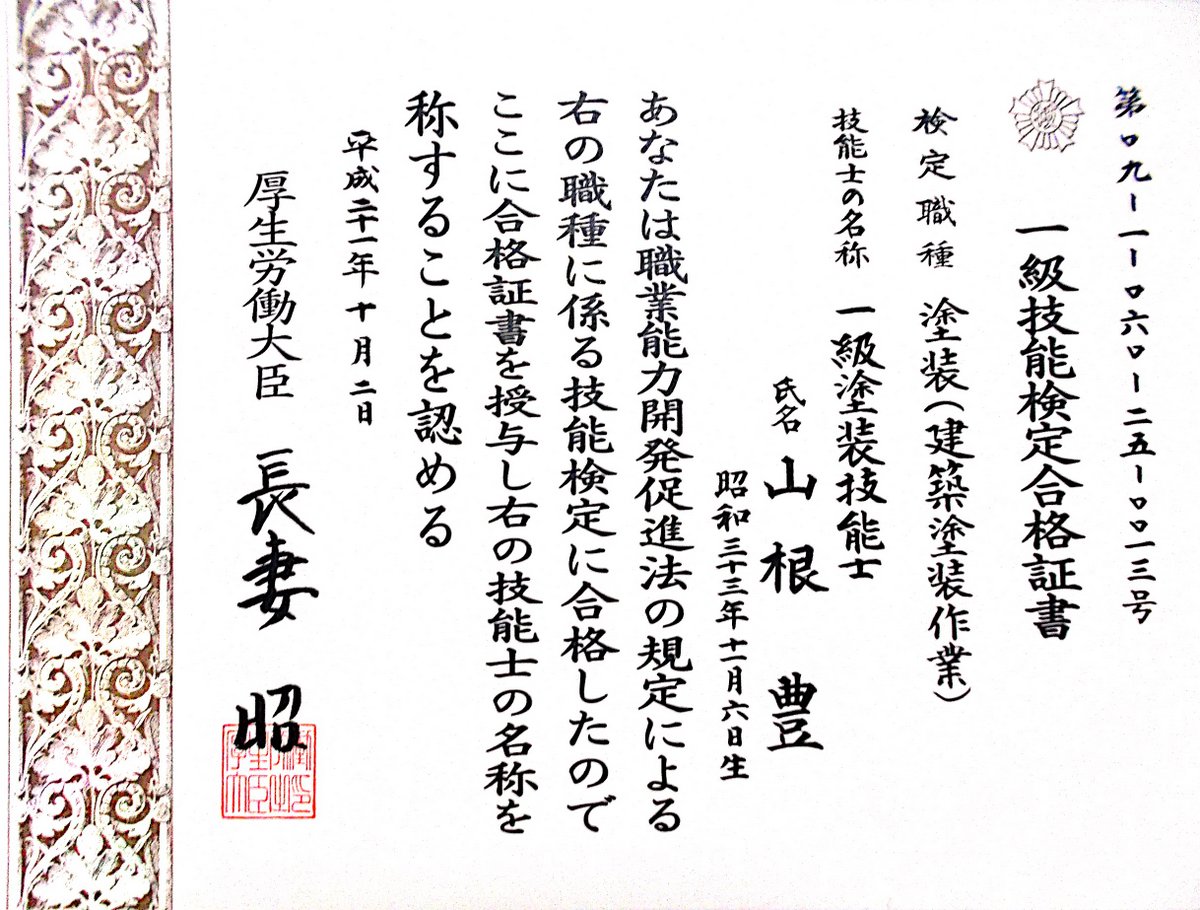 第〇九ー一ー〇六〇ー二五ー〇〇一三号
一級技能検定合格証書
検定職種 塗装(建築塗装作業)
技能士の名称 一級塗装技能士
氏名 山根 豊
昭和三十三年十一月六日生
あなたは職業能力開発促進法の規定による
右の職種に係る技能検定に合格したので
ここに合格証書を授与し右の技能士の名称を
称することを認める
平成二十一年十月二日
厚生労働大臣 長妻 昭